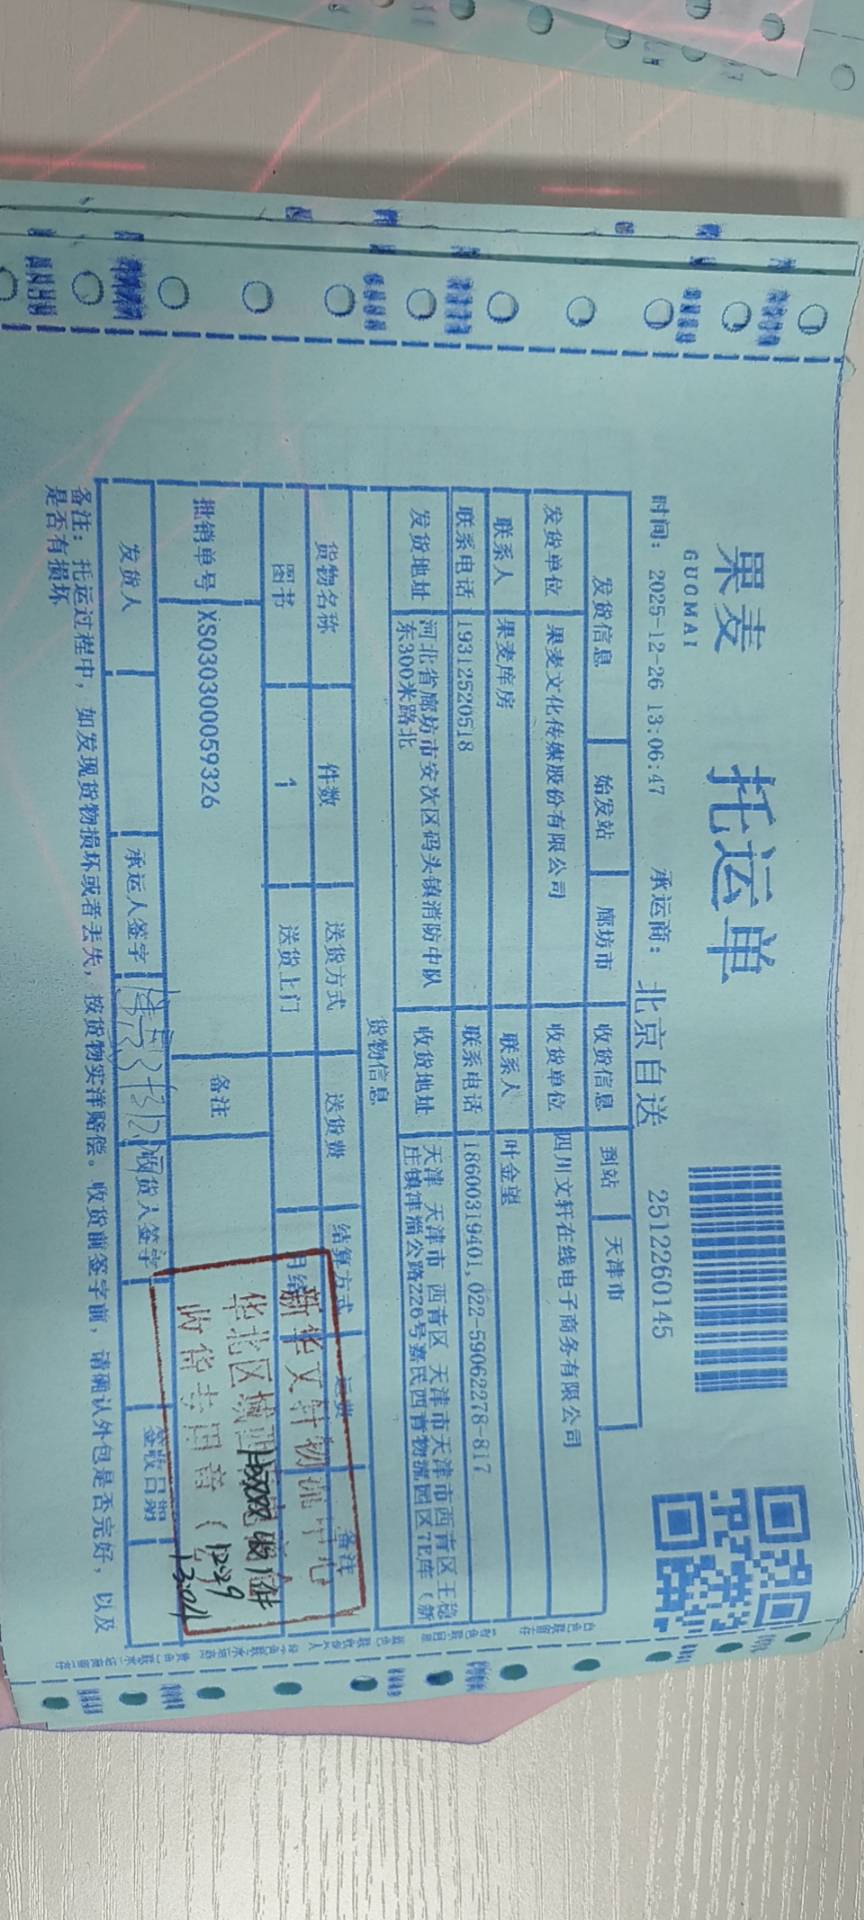 果麦 托运单
GUOMAI
时间: 2025-12-26 13:06:47 承运商: 北京自送 2512260145
发货信息 始发站 廊坊市 收货信息 到站 天津市
发货单位 果麦文化传媒股份有限公司 收货单位 四川文轩在线电子商务有限公司
联系人 果麦库房 联系人 叶金望
联系电话 19312520518 联系电话 18600319401,022-59062278-817
发货地址 河北省廊坊市安次区码头镇消防中队东300米路北 收货地址 天津 天津市 西青区 天津市天津市西青区王稳庄镇津淄公路226号嘉民西青物流园区7E库(新
货物信息
货物名称 件数 送货方式 送货费 结算方式 运费 备注
图书 1 送货上门 月结
批销单号 XS030300059326 备注
发货人 承运人签字 收货人签字 签收日期
备注: 托运过程中, 如发现货物损坏或者丢失, 按货物实洋赔偿。收货前签字前, 请确认外包是否完好, 以及
是否有损坏
新华文轩物流中心
华北区域
收货专用章
12.29